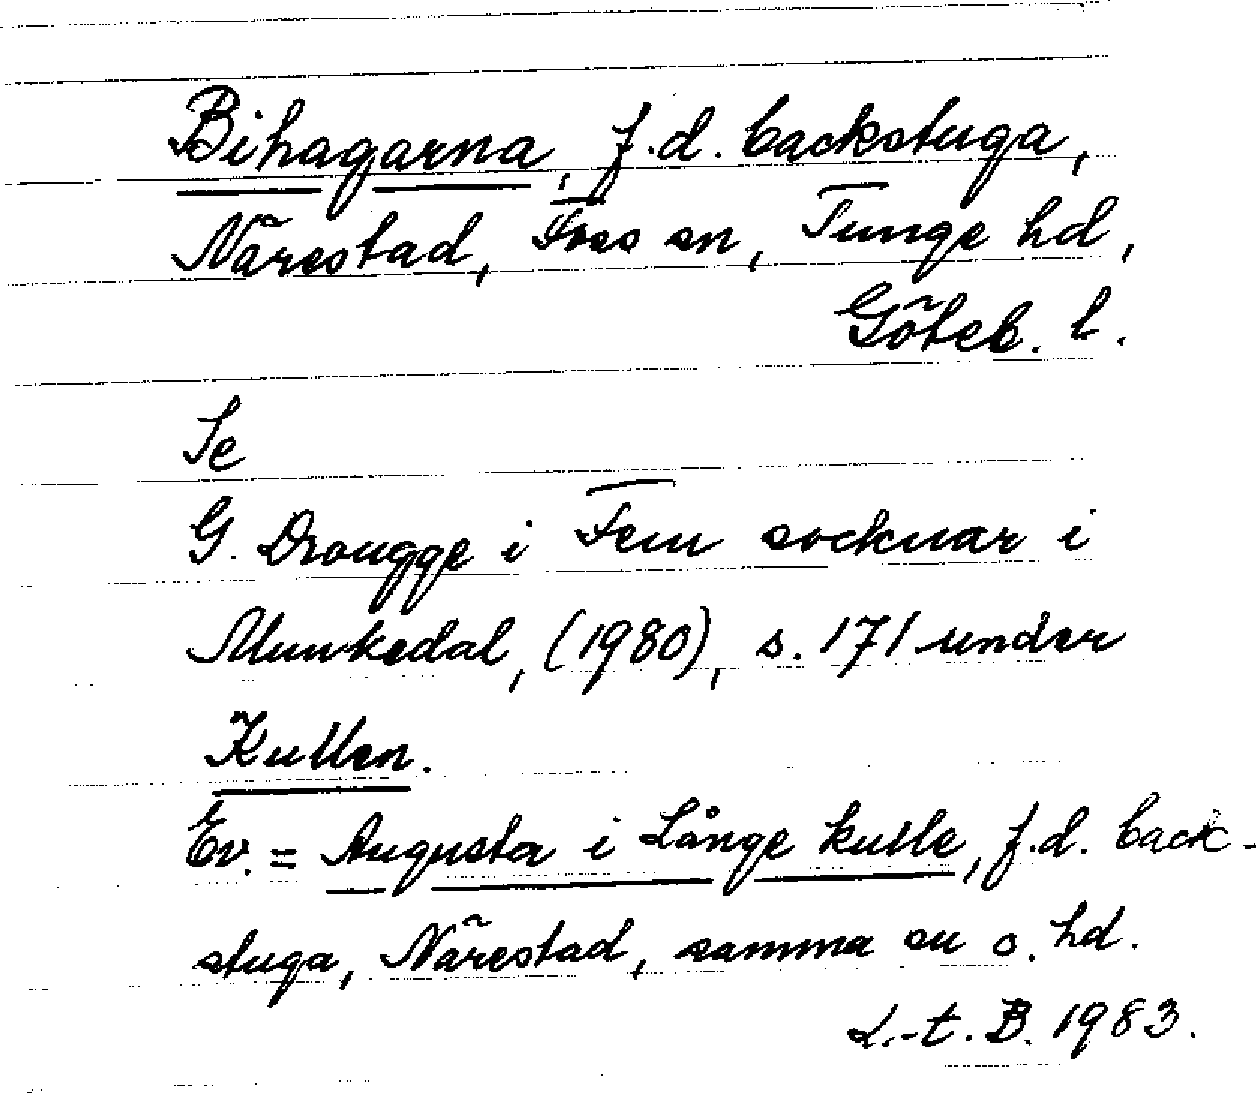 Bihagarna, f.d. backstuga,
Närestad, Foss sn, Tunge hd,
Göteb. l.
Se
G. Drougge i Fem socknar i
Munkedal, (1980), s. 171 under
Kullen.
Ev. = Augusta i Långe kulle, f.d. back-
stuga, Närestad, samma sn o. hd.
L.-t. B. 1983.